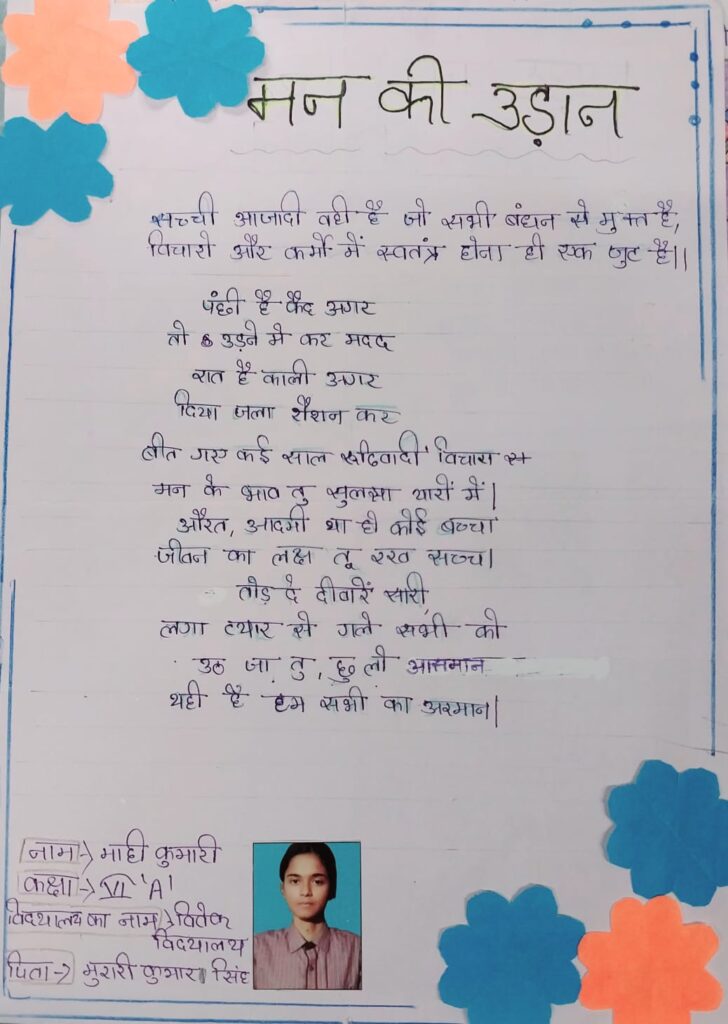 मन की उड़ान
सच्ची आजादी वही है जो सभी बंधन से मुक्त है,
विचारो और कर्मो में स्वतंत्र होना ही एक जुट है।।
पंछी है कैद अगर
तो उड़ने मे कर मदद
रात है काली अगर
दिया जला रौशन कर
बीत गए कई साल रूढिवादी विचारा स
मन के भाव तु सुलझा यारों में|
औरत, आदमी या हो कोई बच्चा
जीवन का लक्ष तू रख सच्च|
तोड़ दे दीवारें सारी,
लगा प्यार से गले सभी को
उठ जा तु, छु लो आसमान
यही है हम सभी का अरमान|
नाम-> माही कुमारी
कक्षा-> VI 'A'
विद्यालय का नाम-> विवेक
विद्यालय
पिता-> मुरारी कुमार सिंह